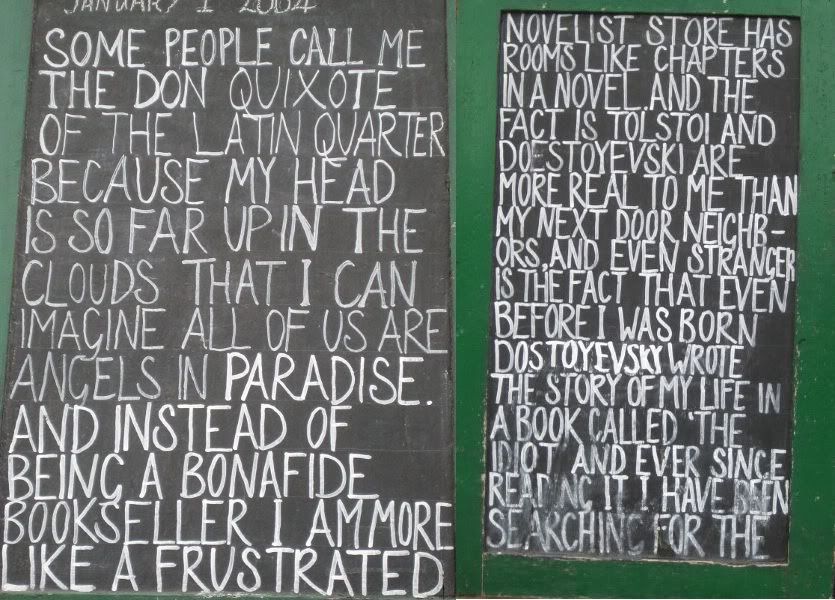 JANUARY 1 2004
SOME PEOPLE CALL ME
THE DON QUIXOTE
OF THE LATIN QUARTER
BECAUSE MY HEAD
IS SO FAR UP IN THE
CLOUDS THAT I CAN
IMAGINE ALL OF US ARE
ANGELS IN PARADISE.
AND INSTEAD OF
BEING A BONAFIDE
BOOKSELLER I AM MORE
LIKE A FRUSTRATED
NOVELIST STORE HAS
ROOMS LIKE CHAPTERS
IN A NOVEL. AND THE
FACT IS TOLSTOI AND
DOESTOYEVSKI ARE
MORE REAL TO ME THAN
MY NEXT DOOR NEIGHB-
ORS, AND EVEN STRANGER
IS THE FACT THAT EVEN
BEFORE I WAS BORN
DOSTOYEVSKY WROTE
THE STORY OF MY LIFE IN
A BOOK CALLED 'THE
IDIOT AND EVER SINCE
READING IT I HAVE BEEN
SEARCHING FOR THE